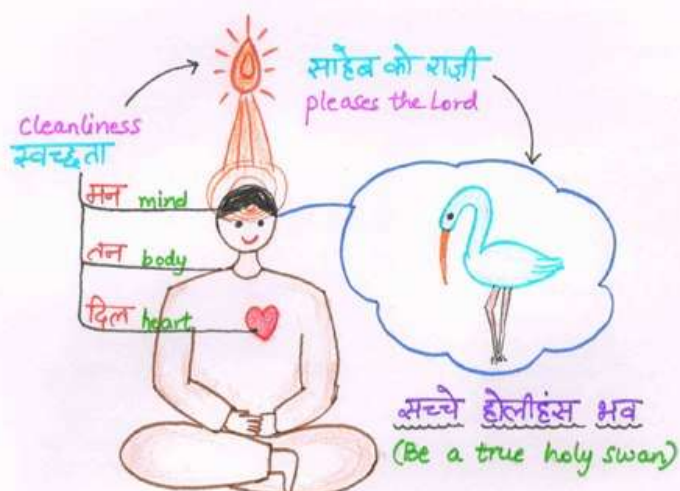 साहेब को राज़ी
pleases the Lord
cleanliness
स्वच्छता
मन mind
तन body
दिल heart
सच्चे होलीहंस भव
(Be a true holy swan)